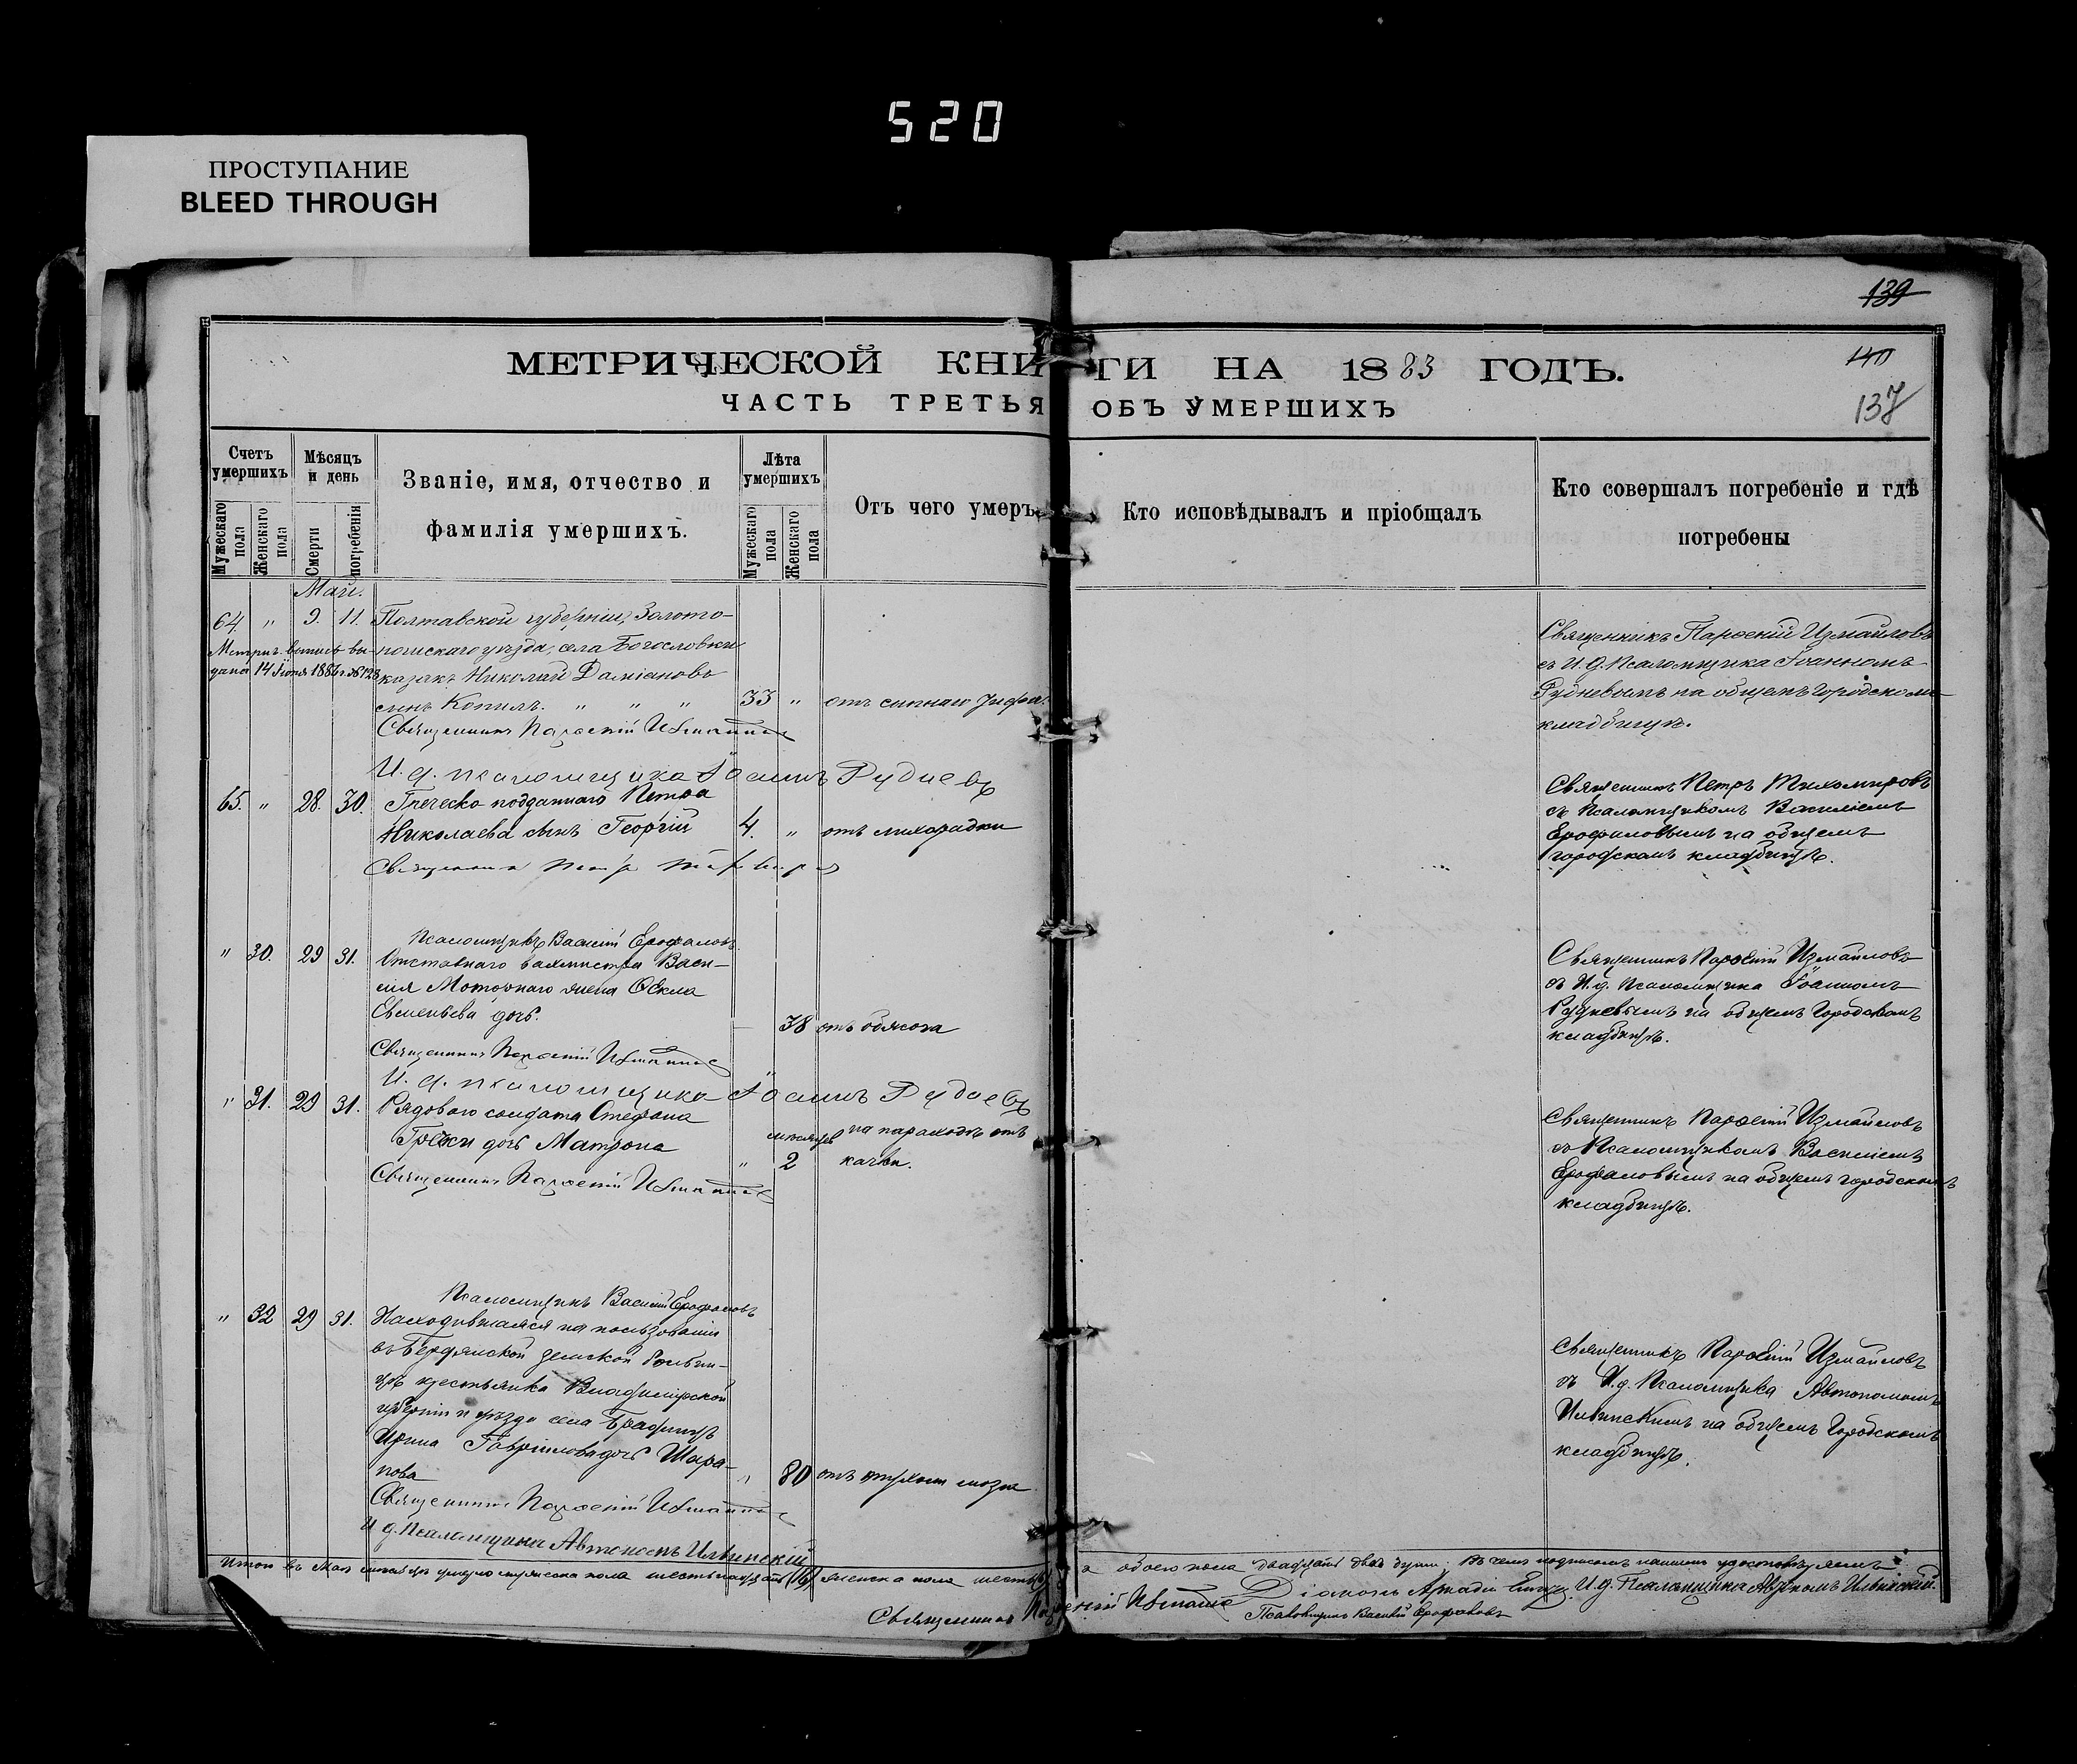 520
ПРОСТУПАНИЕ
BLEED THROUGH
139
140
137
МЕТРИЧЕСКОЙ КНИГИ НА 1883 ГОДЪ.
ЧАСТЬ ТРЕТЬЯ ОБЪ УМЕРШИХЪ
Счетъ умершихъ
Мужескаго пола
Женскаго пола
Мѣсяцъ и день
Смерти
погребенія
Званіе, имя, отчество и
фамилія умершихъ.
Лѣта умершихъ
Мужескаго пола
Женскаго пола
Отъ чего умеръ.
Кто исповѣдывалъ и пріобщалъ
Кто совершалъ погребеніе и гдѣ
погребены
Май.
64. " 9. 11. Полтавской губерніи, Золото-
Метрич. выпись вы- ношскаго уѣзда, села Богословки
дана 14 Іюня 1886 г. № 128 казакъ Николай Даміановъ
сынъ Копилъ. " " " 33 " отъ сыпнаго
Священникъ Парѳеній Измаиловъ
И. д. псаломщика Іоаннъ Рудневъ
Священникъ Парѳеній Измайловъ
съ И. д. Псаломщика Іоанномъ
Рудневымъ на общемъ Городскомъ
кладбищѣ.
65. " 28. 30. Греческо подданнаго Петра
Николаева сынъ Георгій 4. " отъ лихорадки
Священникъ Петръ Тихомировъ
Псаломщикъ Василій Ерофаловъ
Священникъ Петръ Тихомировъ
съ Псаломщикомъ Василіемъ
Ерофаловымъ на общемъ
городскомъ кладбищѣ.
" 30. 29 31. Отставнаго вахмистра Васи-
лія Моторнаго жена Ѳекла
Евменьева дочь. 38 отъ
Священникъ Парѳеній Измаиловъ
И. д. псаломщика Іоаннъ Рудневъ
Священникъ Парѳеній Измайловъ
съ И. д. Псаломщика Іоанномъ
Рудневымъ на общемъ Городскомъ
кладбищѣ.
" 31. 29 31. Рядоваго солдата Стефана
дочь Матрона мѣсяцев на пароходѣ отъ
" 2 качки.
Священникъ Парѳеній Измаиловъ
Псаломщикъ Василій Ерофаловъ
Священникъ Парѳеній Измайловъ
съ Псаломщикомъ Василіемъ
Ерофаловымъ на общемъ городскомъ
кладбищѣ.
" 32 29 31. Находившаяся на пользованіи
въ Бердянской земской больни-
цѣ крестьянка Владимірской
губерніи и уѣзда села
Ирина Гавріилова дочь Шара-
пова " 80 отъ мозга
Священникъ Парѳеній Измаиловъ
И. д. Псаломщика Автономъ Ильинскій
Священникъ Парѳеній Измайловъ
съ И. д. Псаломщика Автономомъ
Ильинскимъ на общемъ Городскомъ
кладбищѣ.
Итого въ Маѣ мѣсяцѣ умерло мужеска пола шестьнадцать (16) женска пола шесть а обоего пола двадцать двѣ души. Въ чемъ подписомъ нашимъ удостовѣряемъ:
Священникъ Парѳеній Измаиловъ Діаконъ Аркадій И. д. Псаломщика Автономъ Ильинскій.
Псаломщикъ Василій Ерофаловъ